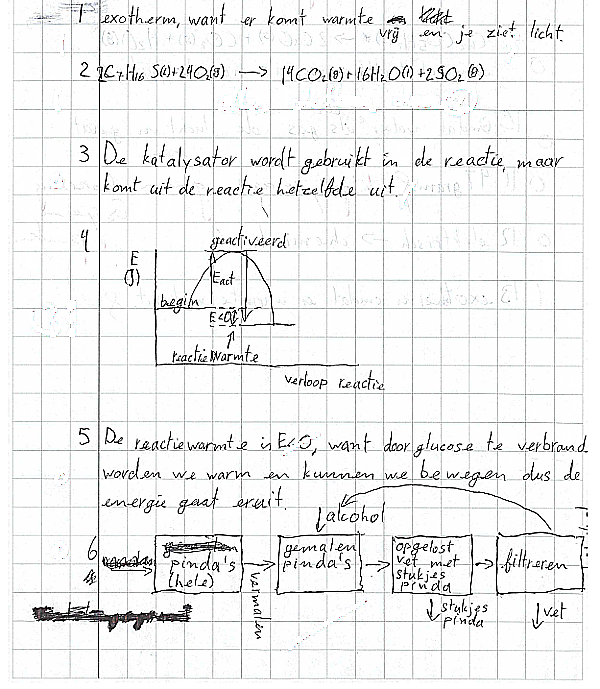 1 exotherm, want er komt warmte
vrij en je ziet licht.
2 2C7H16S(l)+24O2(g) → 14CO2(g)+16H2O(l)+2SO2(g)
3 De katalysator wordt gebruikt in de reactie, maar
komt uit de reactie hetzelfde uit.
4
geactiveerd
E
(J)
Eact
begin
E<0
reactiewarmte
verloop reactie
5 De reactiewarmte is E<0, want door glucose te verbrand
worden we warm en kunnen we bewegen dus de
energie gaat eruit.
alcohol
6
pinda's
(hele)
vermalen
gemalen
pinda's
opgelost
vet met
stukjes
pinda
filtreren
stukjes
pinda
vet